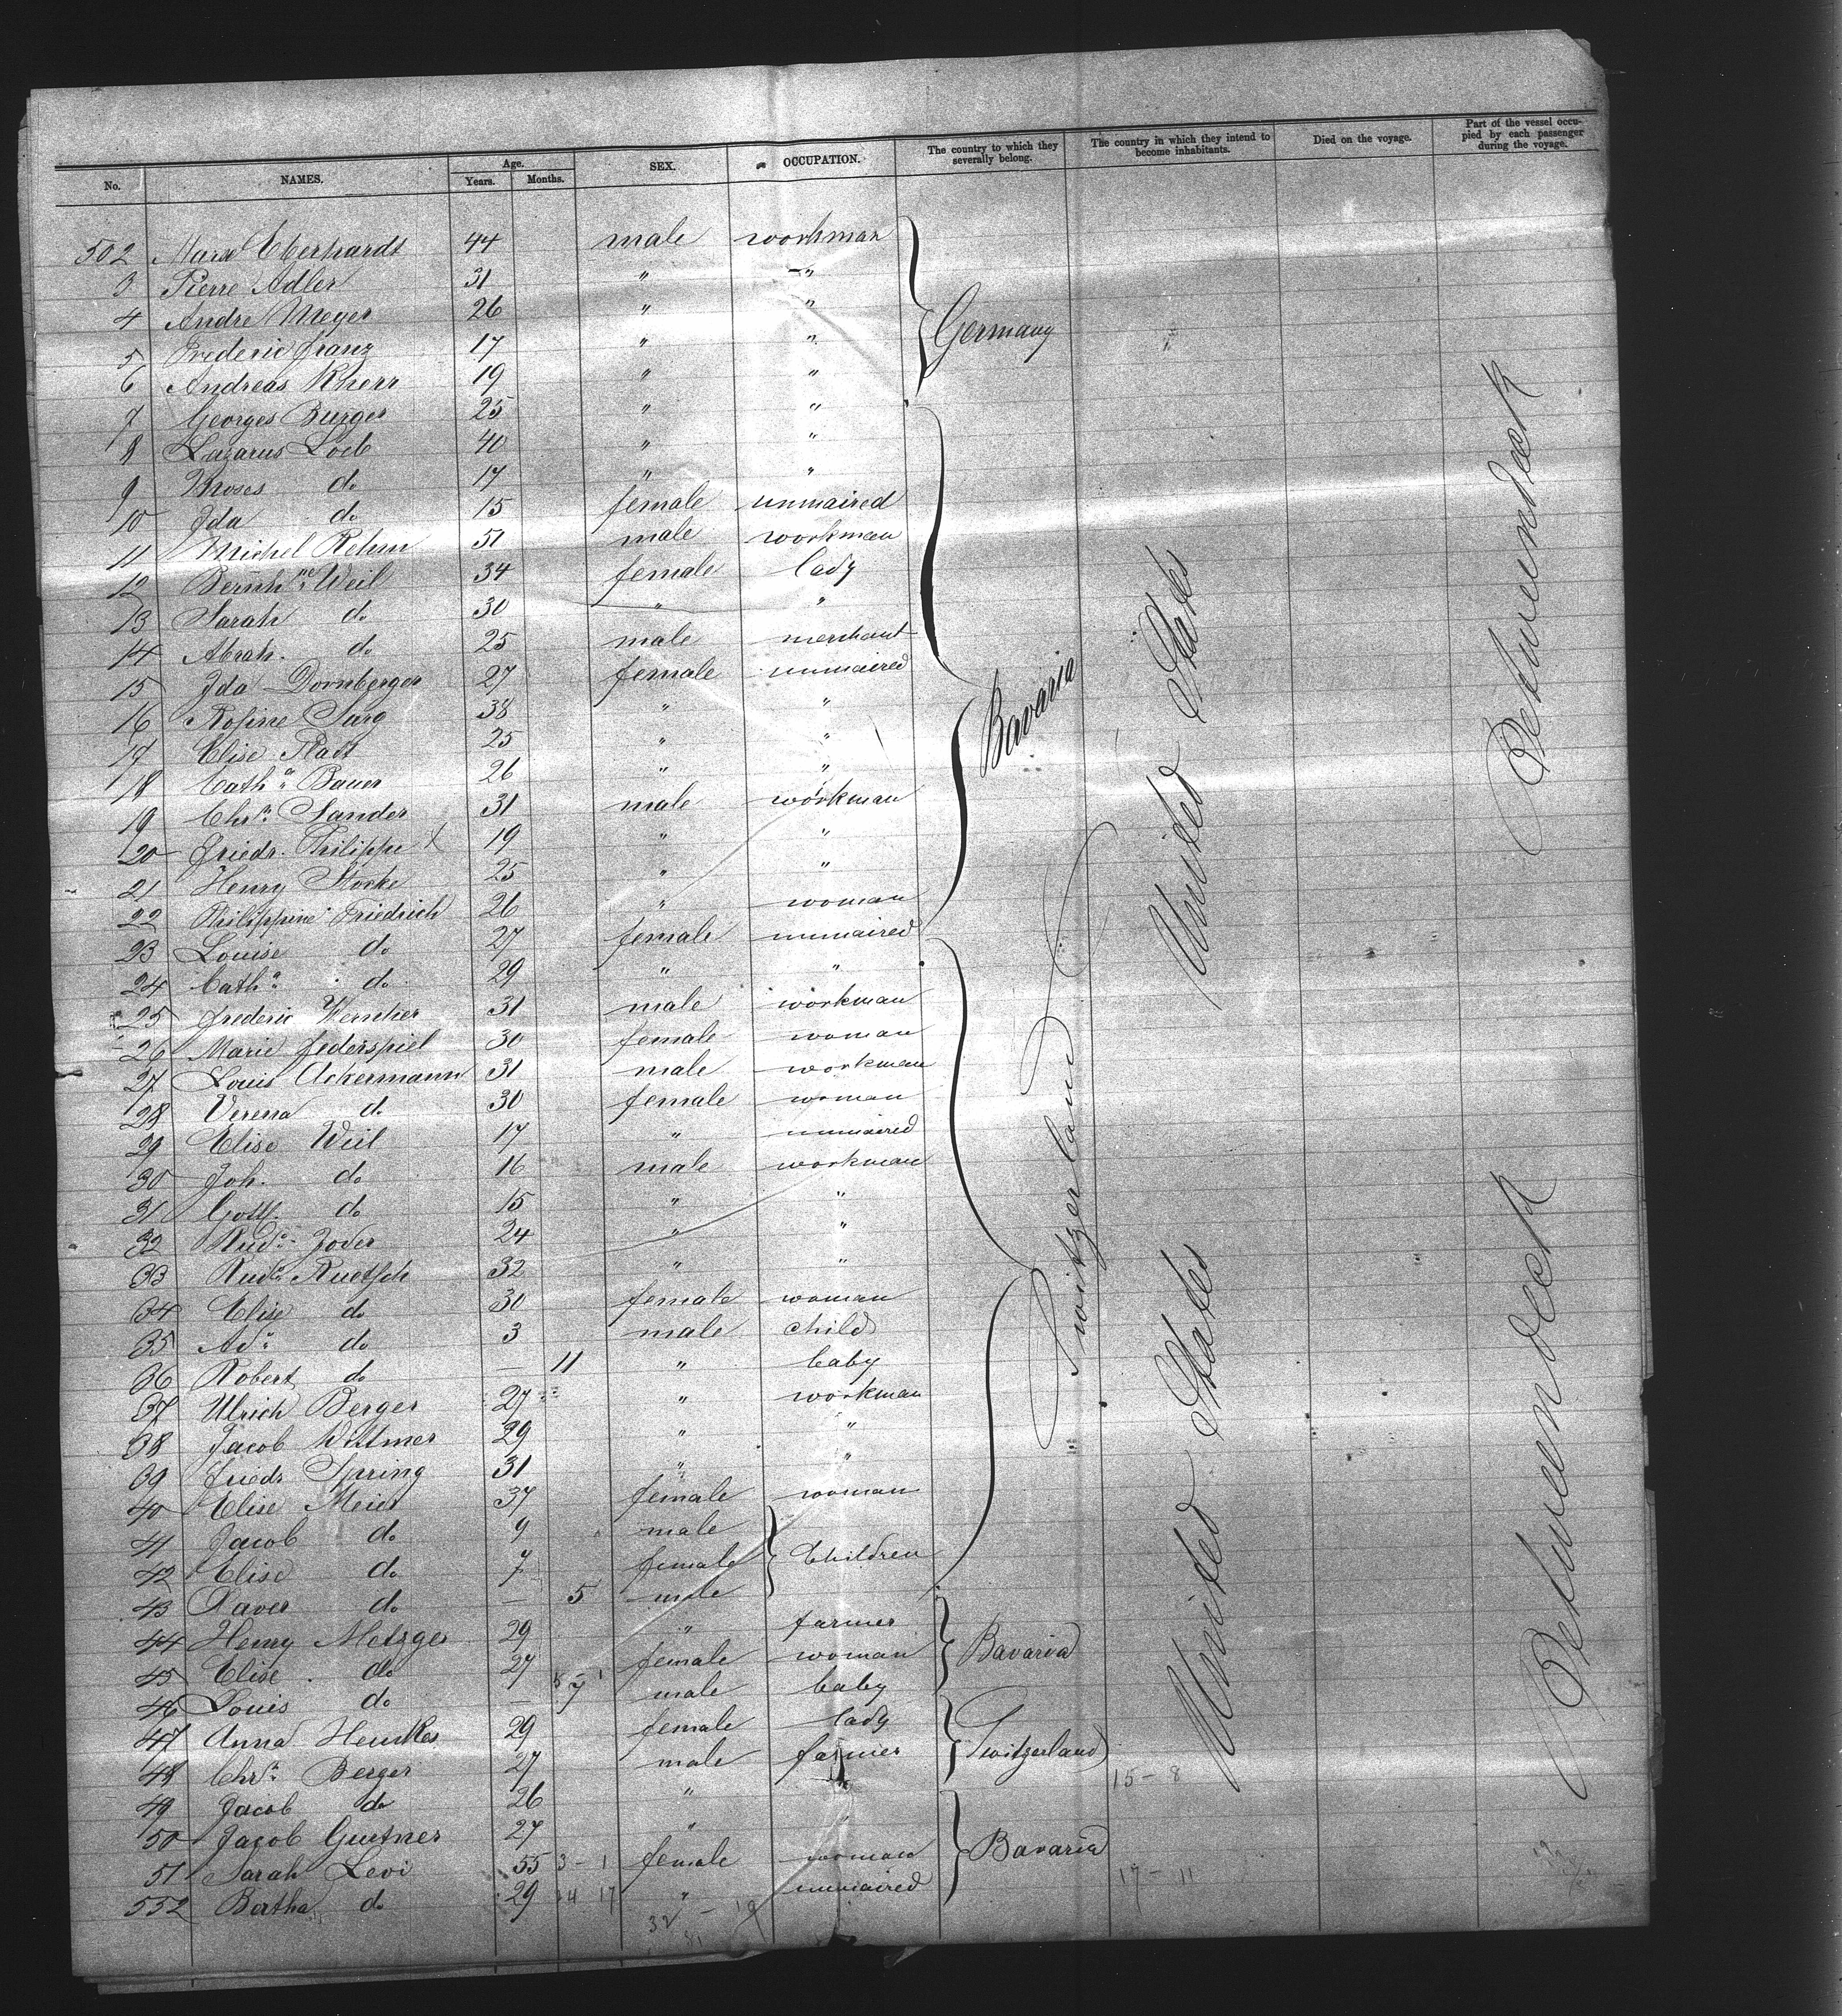 No. NAMES. Age. Years. Months. SEX. OCCUPATION. The country to which they severally belong. The country in which they intend to become inhabitants. Died on the voyage. Part of the vessel occupied by each passenger during the voyage.
502 Marx Eberhardt 44 male workman
3 Pierre Adler 31 " "
4 André Meyer 26 " "
5 Frederic Franz 17 " " Germany
6 Andreas Kherr 19 " "
7 Georges Burger 25 " "
8 Lazarus Loeb 40 " "
9 Moses do 17 " "
10 Ida do 15 female unmaired
11 Michel Rehm 51 male workman
12 Bernhne Weil 34 female lady
13 Sarah do 30 " "
14 Abrah. do 25 male merchant
15 Ida Dornberger 27 female unmaired
16 Rosine Sarg 38 " " Bavaria
17 Elise Stadt 25 " "
18 Catha Bauer 26 " "
19 Chrn Sander 31 male workman
20 Friedr. Philippe X 19 " "
21 Henry Stocke 25 " "
22 Philippine Friedrich 26 " woman
23 Louise do 27 female unmaired
24 Catha do 29 " "
25 Frederic 31 male workman
26 Marie Federspiel 30 female woman
27 Louis Ackermann 31 male workman
28 Verena do 30 female woman
29 Elise Weil 17 " unmaired
30 Joh. do 16 male workman
31 Gottl. do 15 " "
32 Rud. Joder 24 " "
33 Rud. Ruetsch 32 " " Switzerland
34 Elise do 30 female woman
35 Ad. do 3 male child
36 Robert do — 11 " baby
37 Ulrich Berger 27 " workman
38 Jacob Wittmer 29 " "
39 Friedr Spring 31 " "
40 Elise Meier 37 female woman
41 Jacob do 9 male
42 Elise do 7 female Children
43 Xaver do — 5 male
44 Henry Metzger 29 " farmer
45 Elise do 27 female woman Bavaria
46 Louis do — 7 male baby
47 Anna 29 female lady
48 Chrn Berger 27 male farmer Switzerland
49 Jacob do 26 " " 15 - 8
50 Jacob Guitner 27 " "
51 Sarah Levi 55 3 - 1 female woman Bavaria
552 Bertha do 29 14 17 " unmaired 17 - 11
32 - 19
United States
United States
Betweendeck
Betweendeck